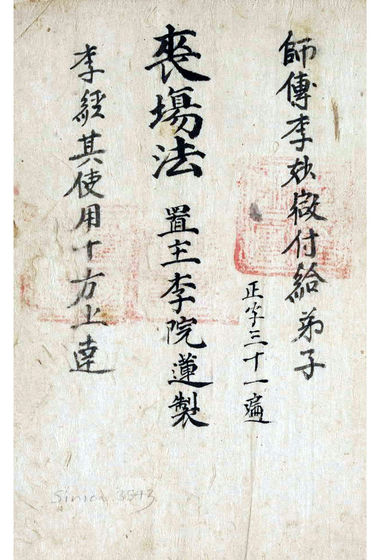 師傳李妙微付給弟子
正字三十一遍
喪塲法 置主李院蓮製
李經其使用十方上達
Sinica 3543